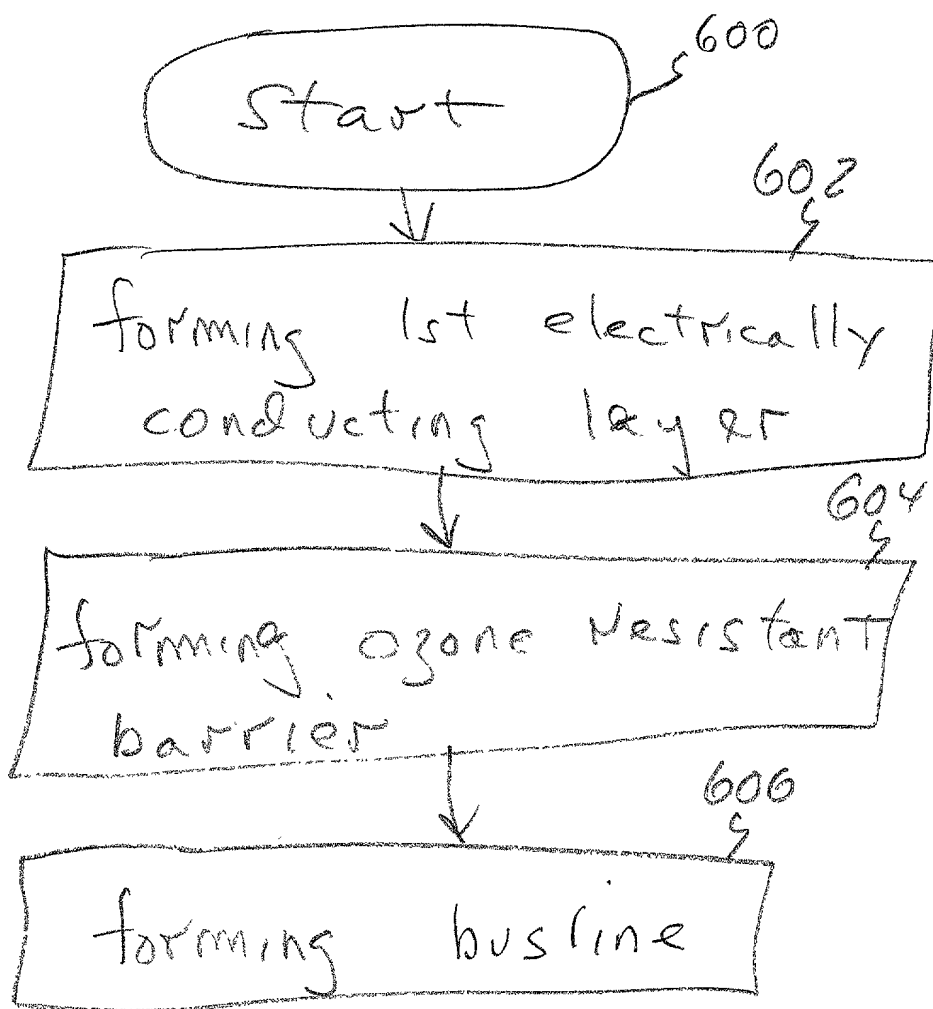 600
Start
602
forming 1st electrically
conducting layer
604
forming ozone resistant
barrier
606
forming busline